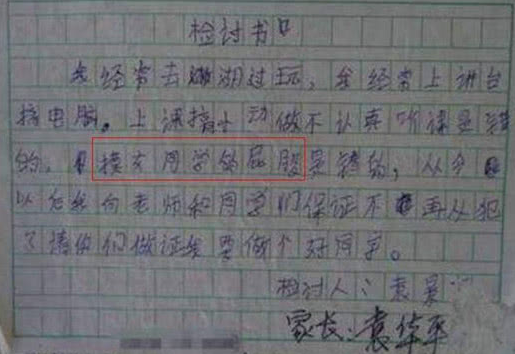 检讨书
我经常去湖过玩，我经常上讲台
搞电脑。上课搞小动做不认真听课是错
的。摸女同学的屁股是错的，从今
以后我向老师和同学们保证不再从犯
了请你们做证我要做个好同学。
检讨人：袁
家长：袁华平